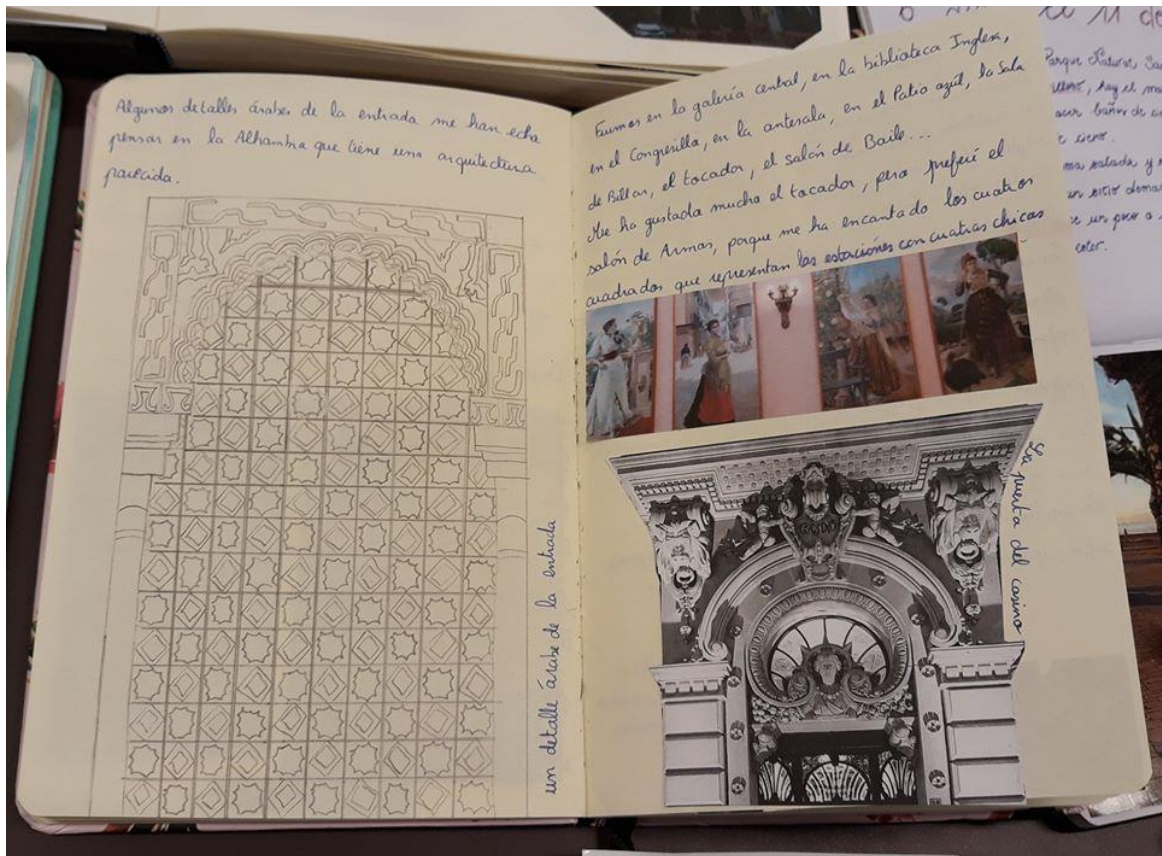 Algunos detalles árabes de la entrada me han echa
pensar en la Alhambra que tiene una arquitectura
parecida.
un detalle árabe de la entrada
Fuimos en la galería central, en la biblioteca Inglesa,
en el Congresillo, en la antesala, en el Patio azúl, la Sala
de Billar, el tocador, el salón de Baile...
Me ha gustada mucho el tocador, pero preferí el
salón de Armas, porque me ha encantado los cuatros
cuadrados que representan las estaciones con cuatras chicas
La puerta del casino
11 de
Parque Natural, Sa
hay el ma
baños de
ma salada y
un sitio dema
un poco a